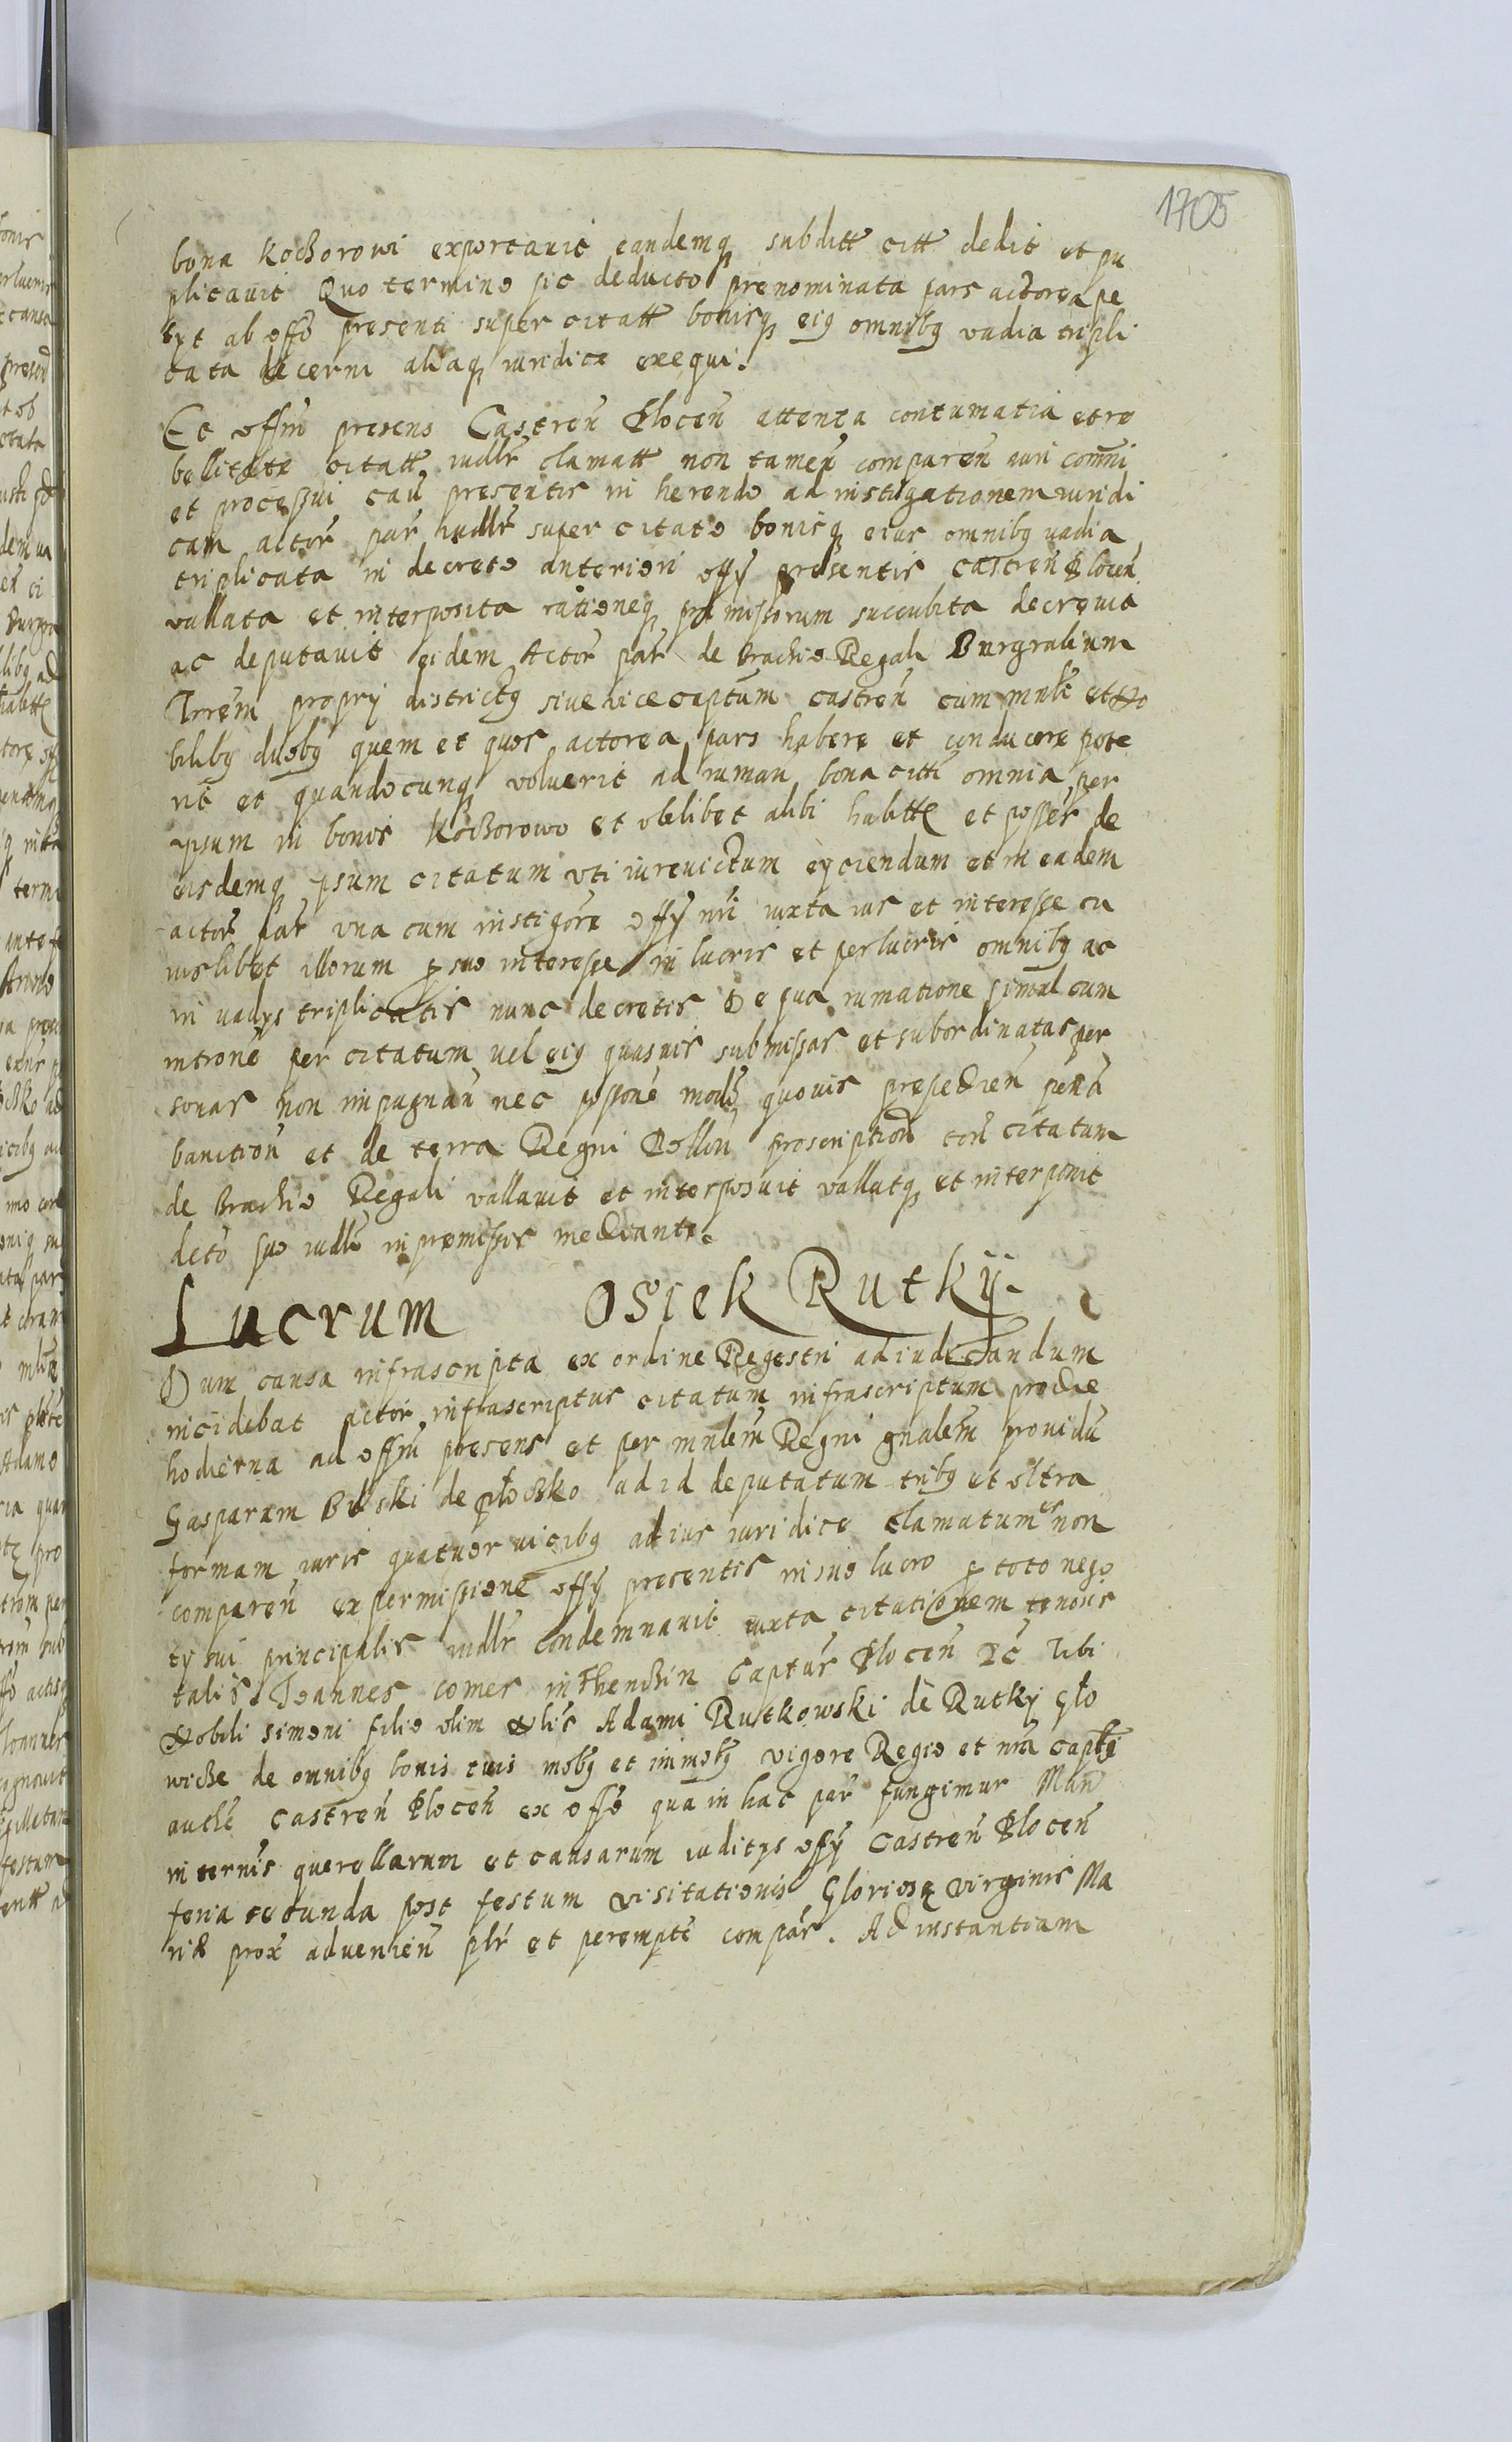 1705
bona Koczorowi exportavit eandemq subditt citt dedit et pu
plicavit Quo termino sic deducto prenominata pars actorea pe
tyt ab offo presenti super citatt bonisq eiq omnibq vadia tripli
cata decerni aliaq iuridice exequi.
Et offm presens Castren Plocen attenta contumatia et re
bellitate citatt iudlr clamatt non tamen comparen iuri comni
et processui cau presentis in herendo ad instigationem iuridi
cam actor par iudlr super citato bonisq eius omnibq vadia
triplicata in decreto anteriori offy presentis castren Plocen
vallata et interposita rationeq premissorum succubita decrevit
ac deputavit eidem Actor par de Brachio Regali Burgrabium
Trrem propry districtq sive vicecaptum castren cum mnlr et No
bilibq duobq quem et quos actorea pars habere et conducere pote
rit et quandocunq voluerit ad ruman bona citti omnia per
ipsum in bonis Koczorowo et vbilibet alibi habitt et posses de
eisdemq ipsum citatum vti iurevictum eyciendum et in eadem
actor par vna cum instigore offy nri iuxta ius et interesse cu
iuslibet illorum p suo interesse in lucris et perlucris omnibq ac
in vadys triplicatis nunc decretis De qua rumatione simul cum
introne per citatum vel eiq quasvis submissas et subordinatas per
sonas non impugnan nec ppone modo quovis prepedien pena
banition et de terra Regni Pollon proscription con citatum
de Brachio Regali vallavit et interposuit vallatq et interponit
decto suo iudlr in premissis mediante.
Lucrum Osiek Rutky
Dum causa infrascripta ex ordine Regestri ad iudicandum
incidebat Actor infrascriptus citatum infrascriptum pro die
hodierna ad offm presens et per mnlem Regni gnalem providu
Gasparem Bilski de Płoczko ad id deputatum tribq et vltra
formam iuris quatuor vicibq ad ius iuridice clamatum et non
comparen ex permissione offy presentis in suo lucro p toto nego
ty sui principalis iudlr condemnavit iuxta citationem tenoris
talis Joannes comes in Thenczin Captus Plocen &c Tibi
Nobili Simoni filio olim Nlis Adami Rutkowski de Rutky Gło
wicze de omnibq bonis tuis mobq et immobq vigore Regio et nra captli
authe castren Plocen ex offo qua in hac par fungimur Man
in ternis querellarum et causarum iuditys offy Castren Plocen
feria secunda post festum visitationis Gloriose virginis Ma
rie prox advenien plr et perempte compar. Ad instantiam